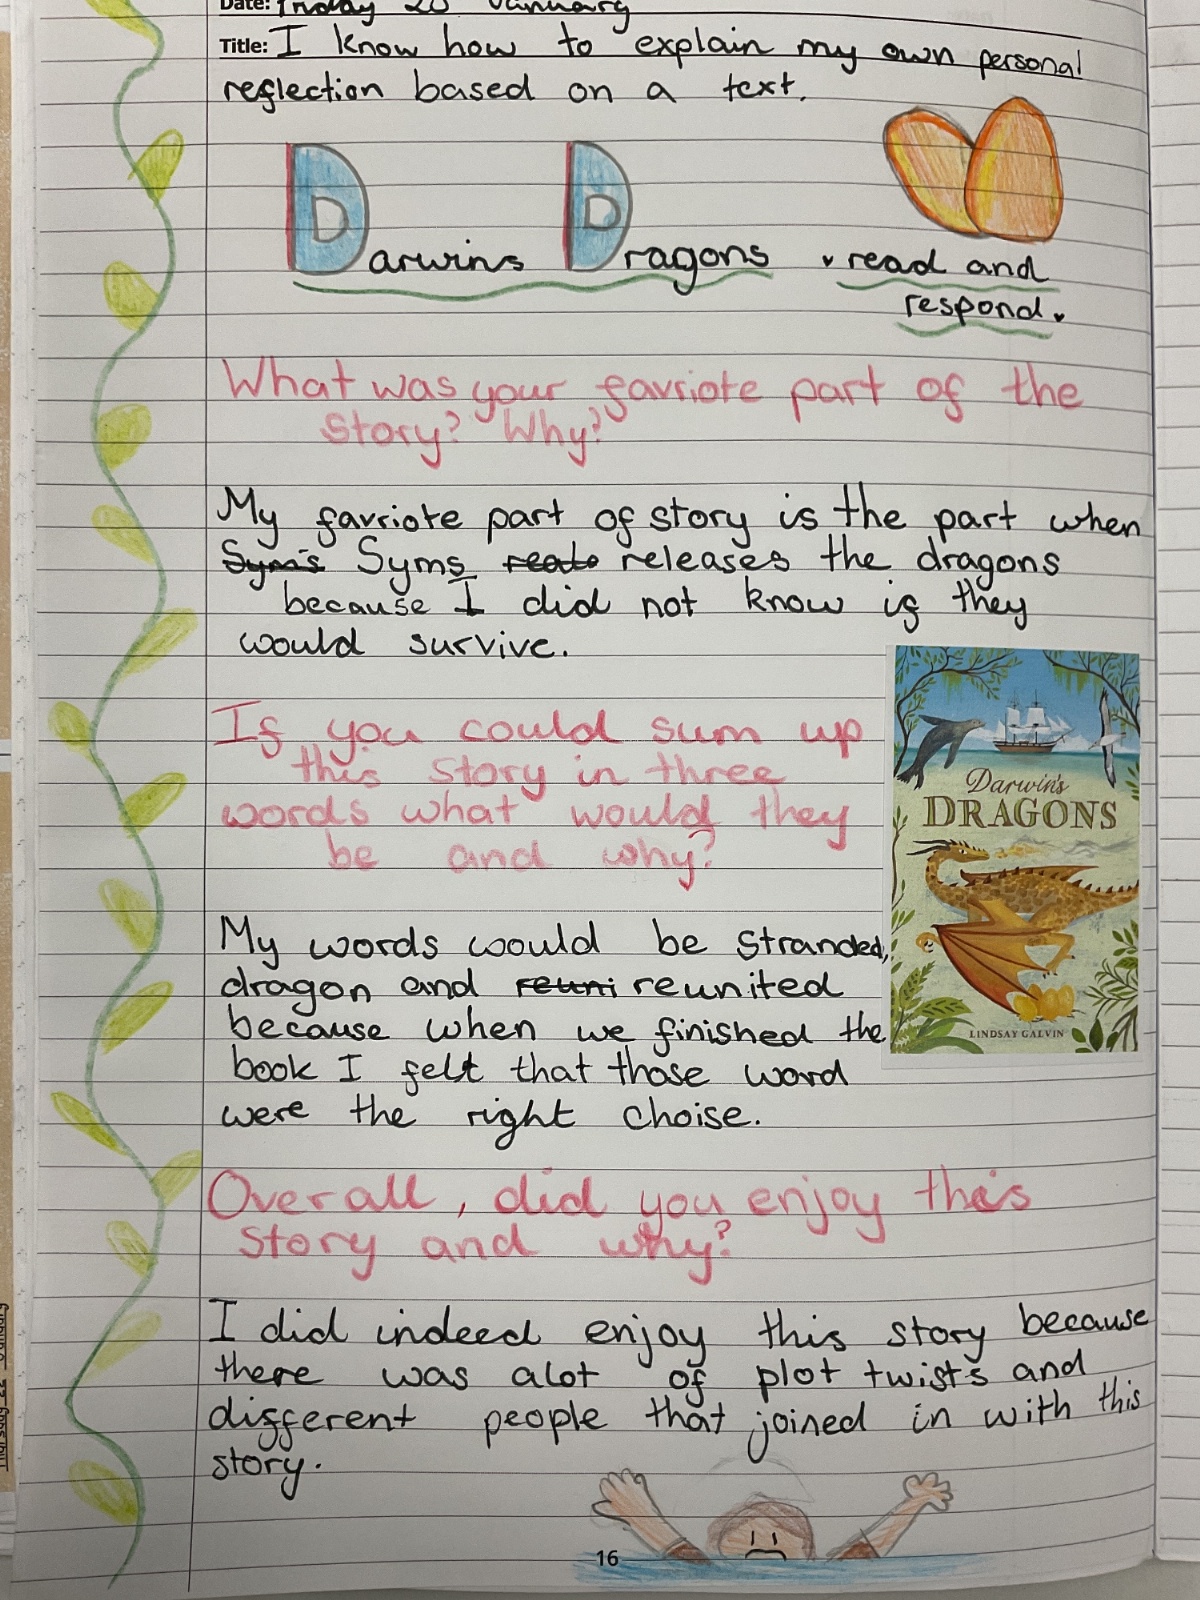 Date: Friday 20 January
Title: I know how to explain my own personal
reflection based on a text.
Darwins Dragons read and
respond.
What was your favriote part of the
story? Why?
My favriote part of story is the part when
Sym's Syms reale releases the dragons
because I did not know if they
would survive.
If you could sum up
this story in three
words what would they
be and why?
Darwin's
DRAGONS
LINDSAY GALVIN
My words would be stranded,
dragon and reuni reunited
because when we finished the
book I felt that those word
were the right choise.
Overall, did you enjoy this
story and why?
I did indeed enjoy this story because
there was alot of plot twists and
different people that joined in with this
story.
16